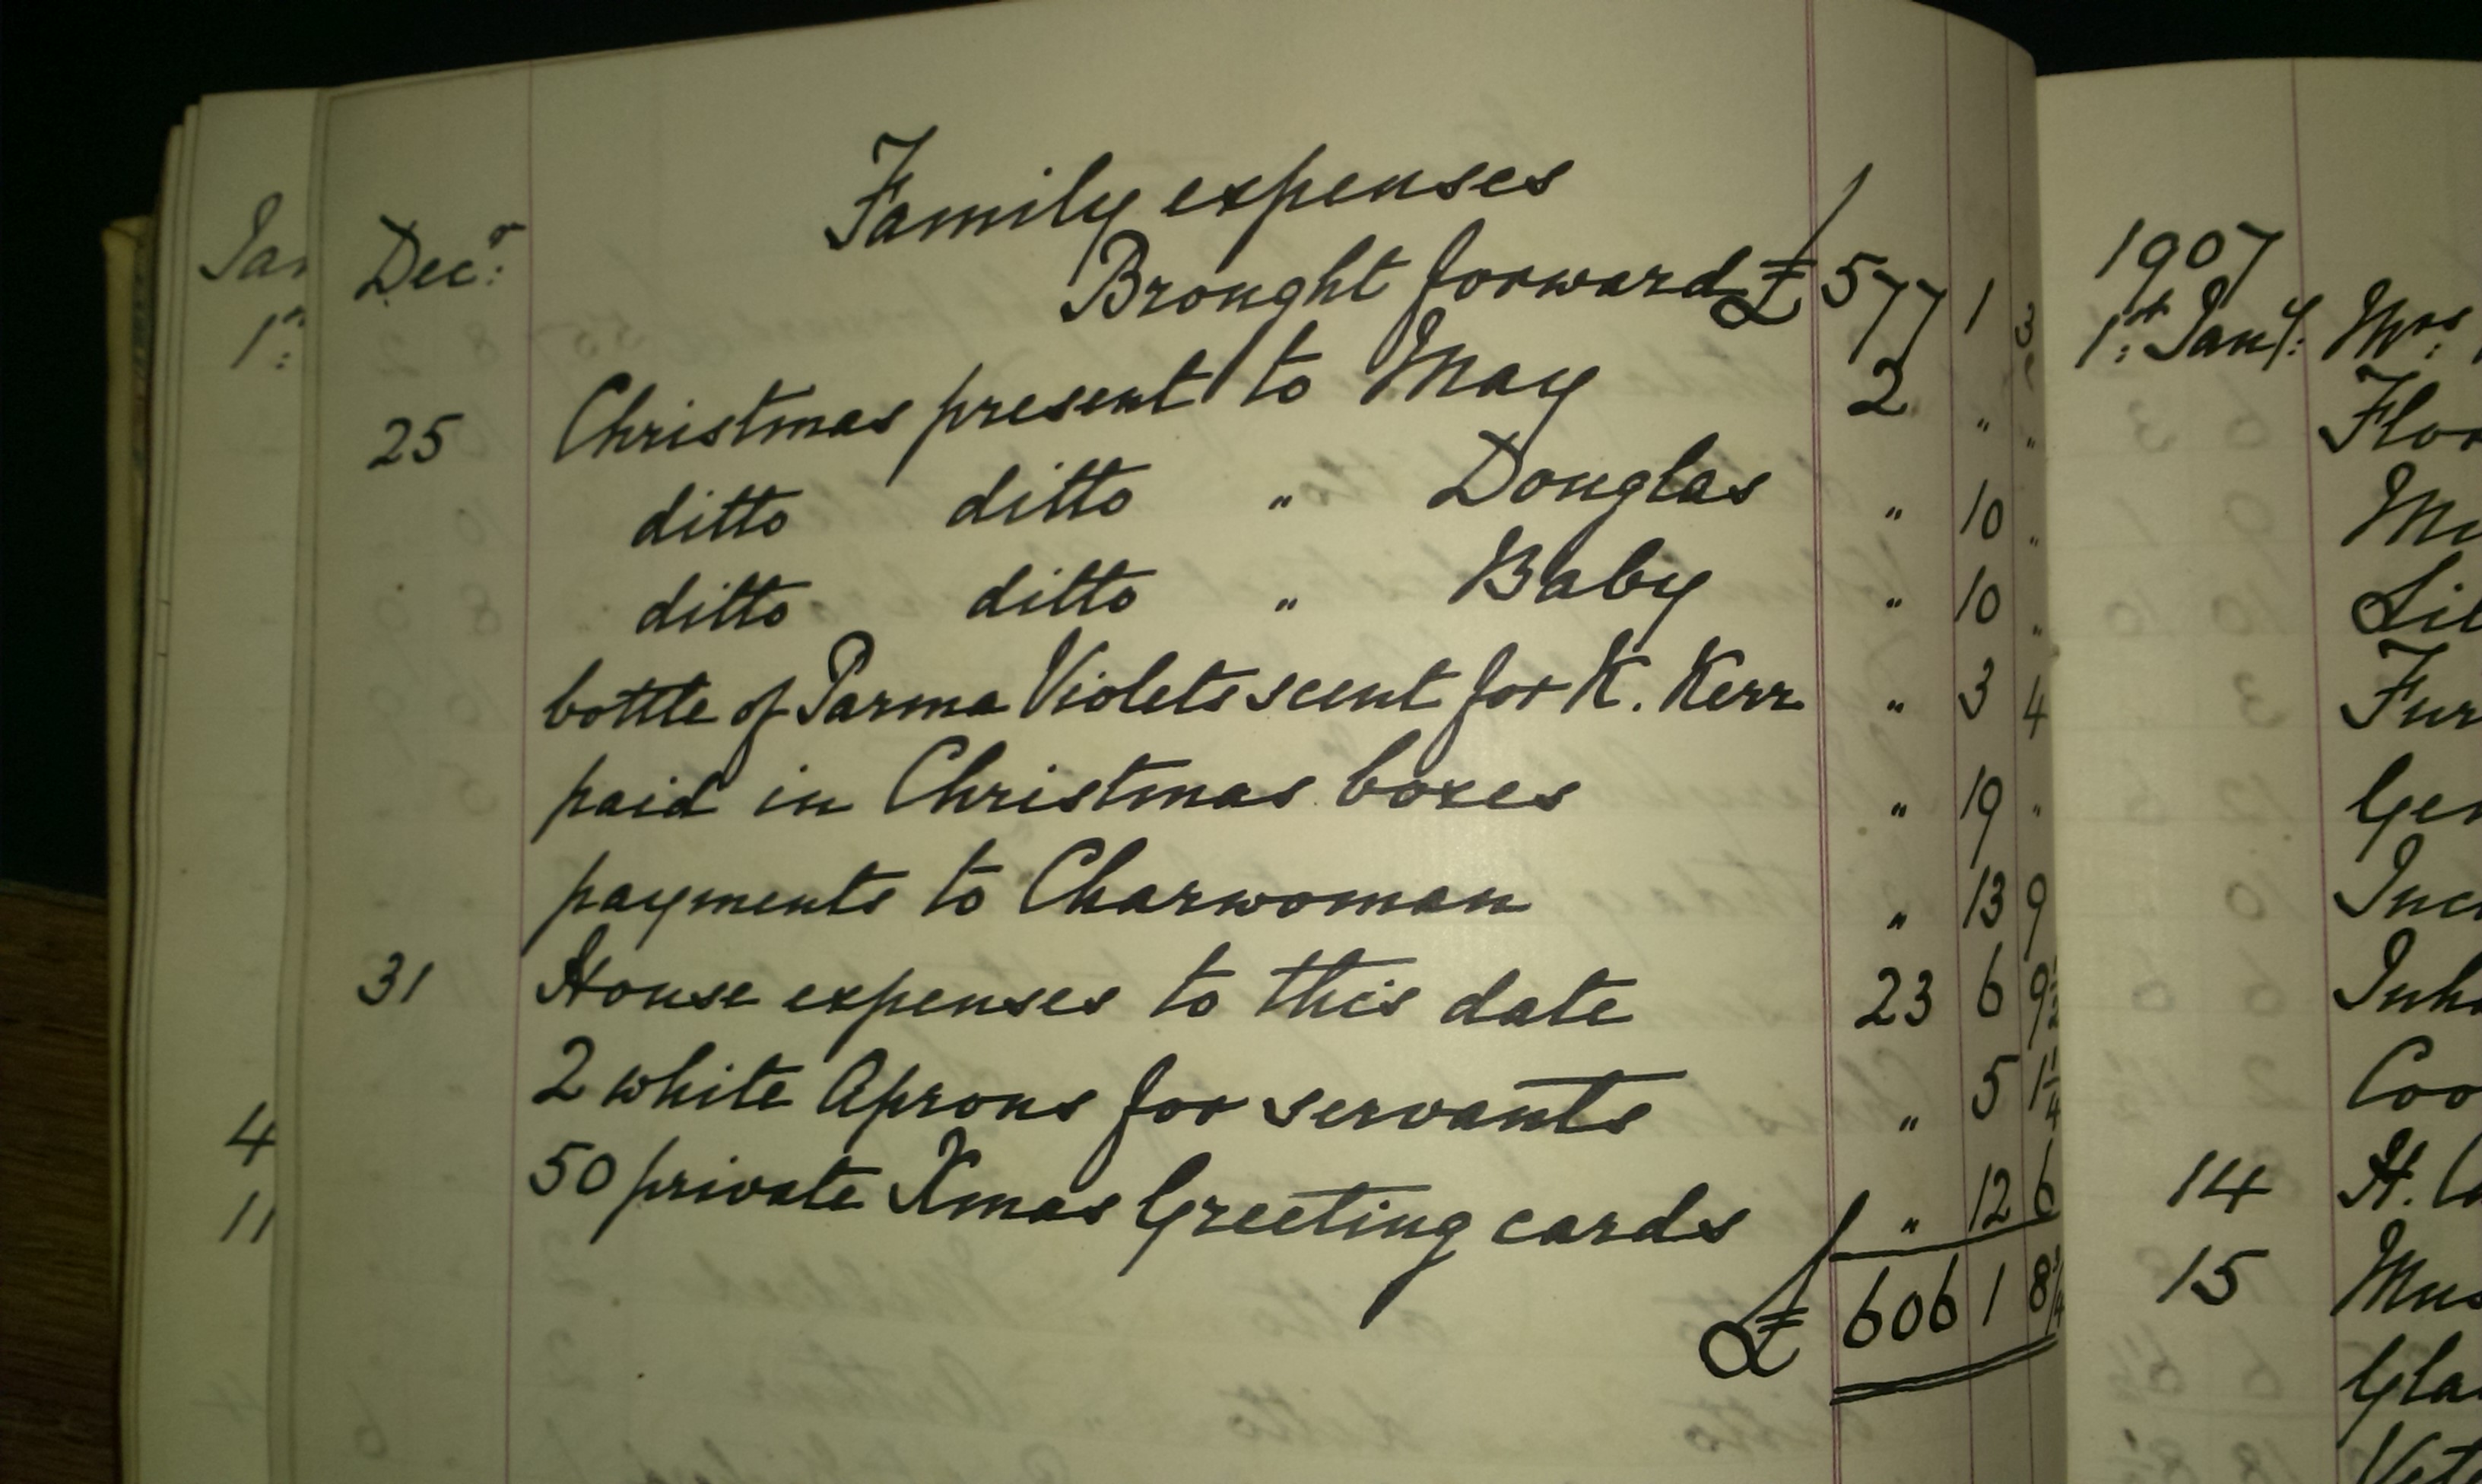 Family expenses
Decr:
Brought forward £ 577 1 3
25 Christmas present to May 2 " "
ditto ditto " Douglas " 10 "
ditto ditto " Baby " 10 "
bottle of Parma Violets scent for K. Kerr " 3 4
paid in Christmas boxes " 19 "
payments to Charwoman " 13 9
31 House expenses to this date 23 6 9½
2 white Aprons for servants " 5 1¼
50 private Xmas Greeting cards " 12 6
£ 606 1 8¾
4
11
1907
1st Jany: Mrs:
14 H.
15